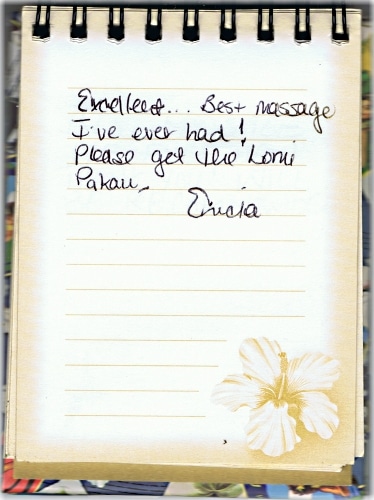 Excellent... Best massage
I've ever had!
Please get the Lomi
Pakau